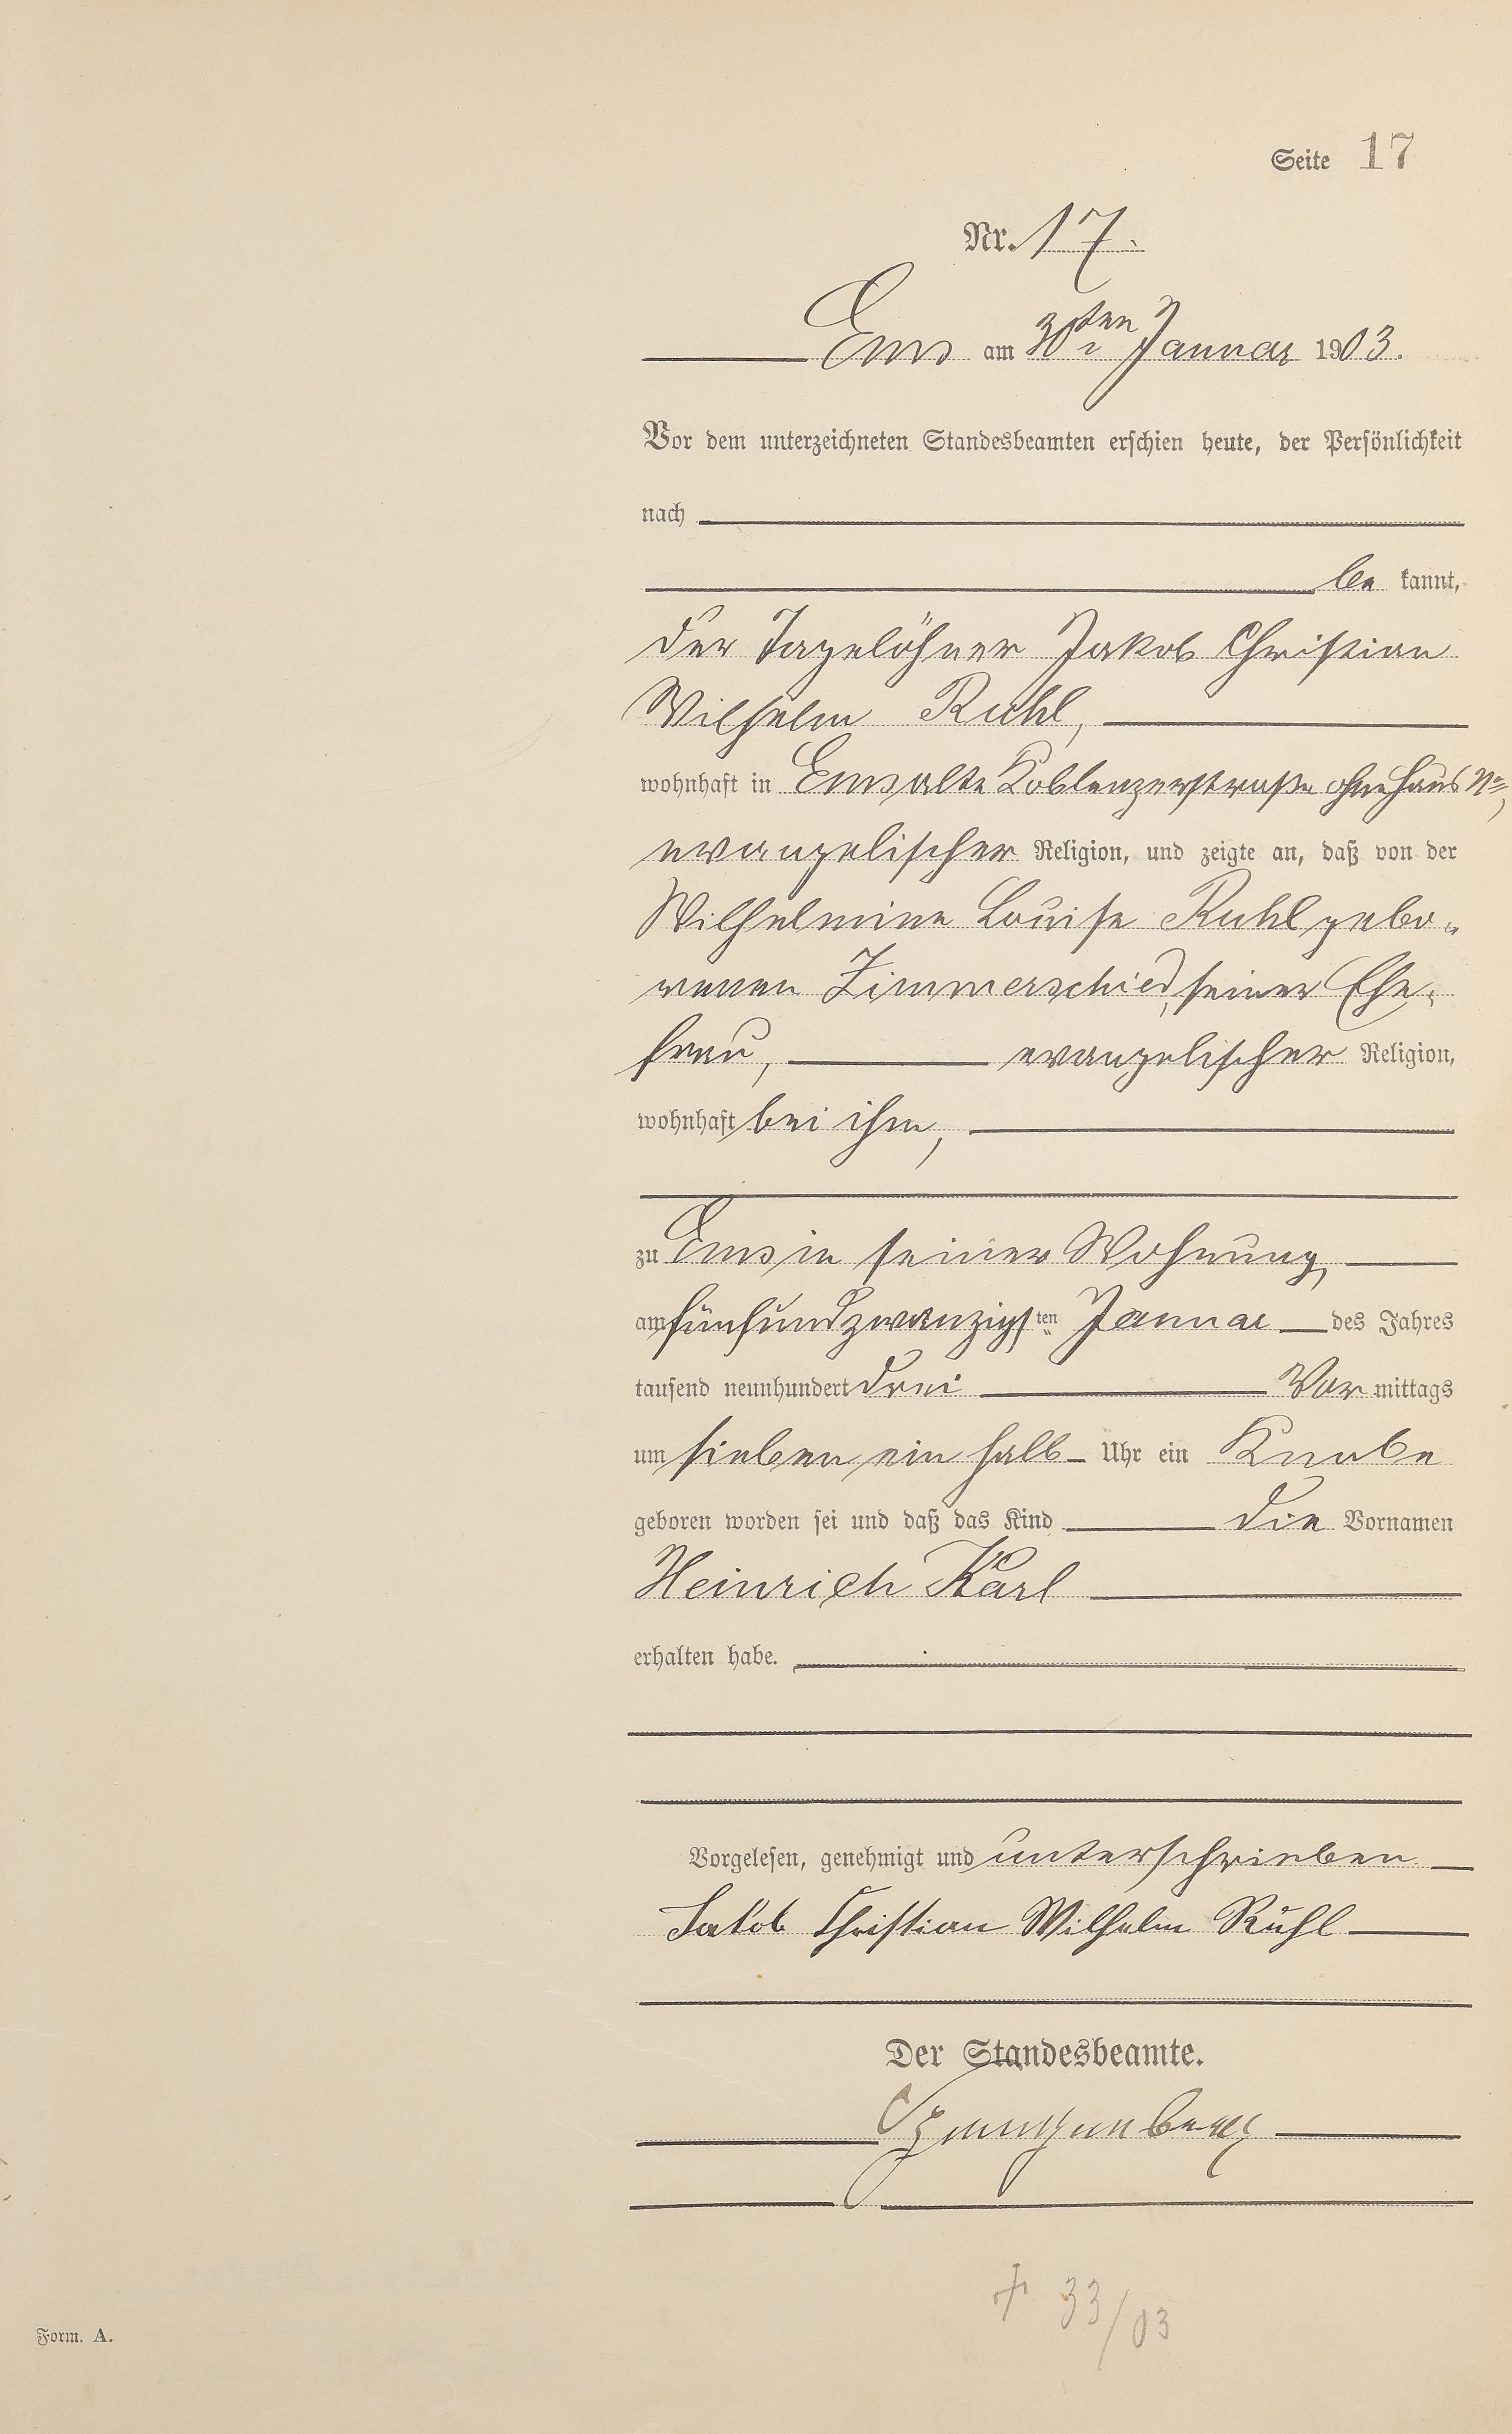 Seite 17
Nr. 17.
Ems am 30ten Januar 1903.
Vor dem unterzeichneten Standesbeamten erschien heute, der Persönlichkeit
nach
be kannt,
der Tagelöhner Jakob Christian
Wilhelm Ruhl,
wohnhaft in Ems alte Koblenzerstraße ohne Haus No,
evangelischer Religion, und zeigte an, daß von der
Wilhelmine Louise Ruhl gebo„
renen Zimmerschied, seiner Ehe„
frau, evangelischer Religion,
wohnhaft bei ihm,
zu Ems in seiner Wohnung,
am fünfundzwanzigsten Januar des Jahres
tausend neunhundert drei Vor mittags
um sieben ein halb Uhr ein Knabe
geboren worden sei und daß das Kind die Vornamen
Heinrich Karl
erhalten habe.
Vorgelesen, genehmigt und unterschrieben
Jakob Christian Wilhelm Ruhl
Der Standesbeamte.
+ 33/03
Form. A.